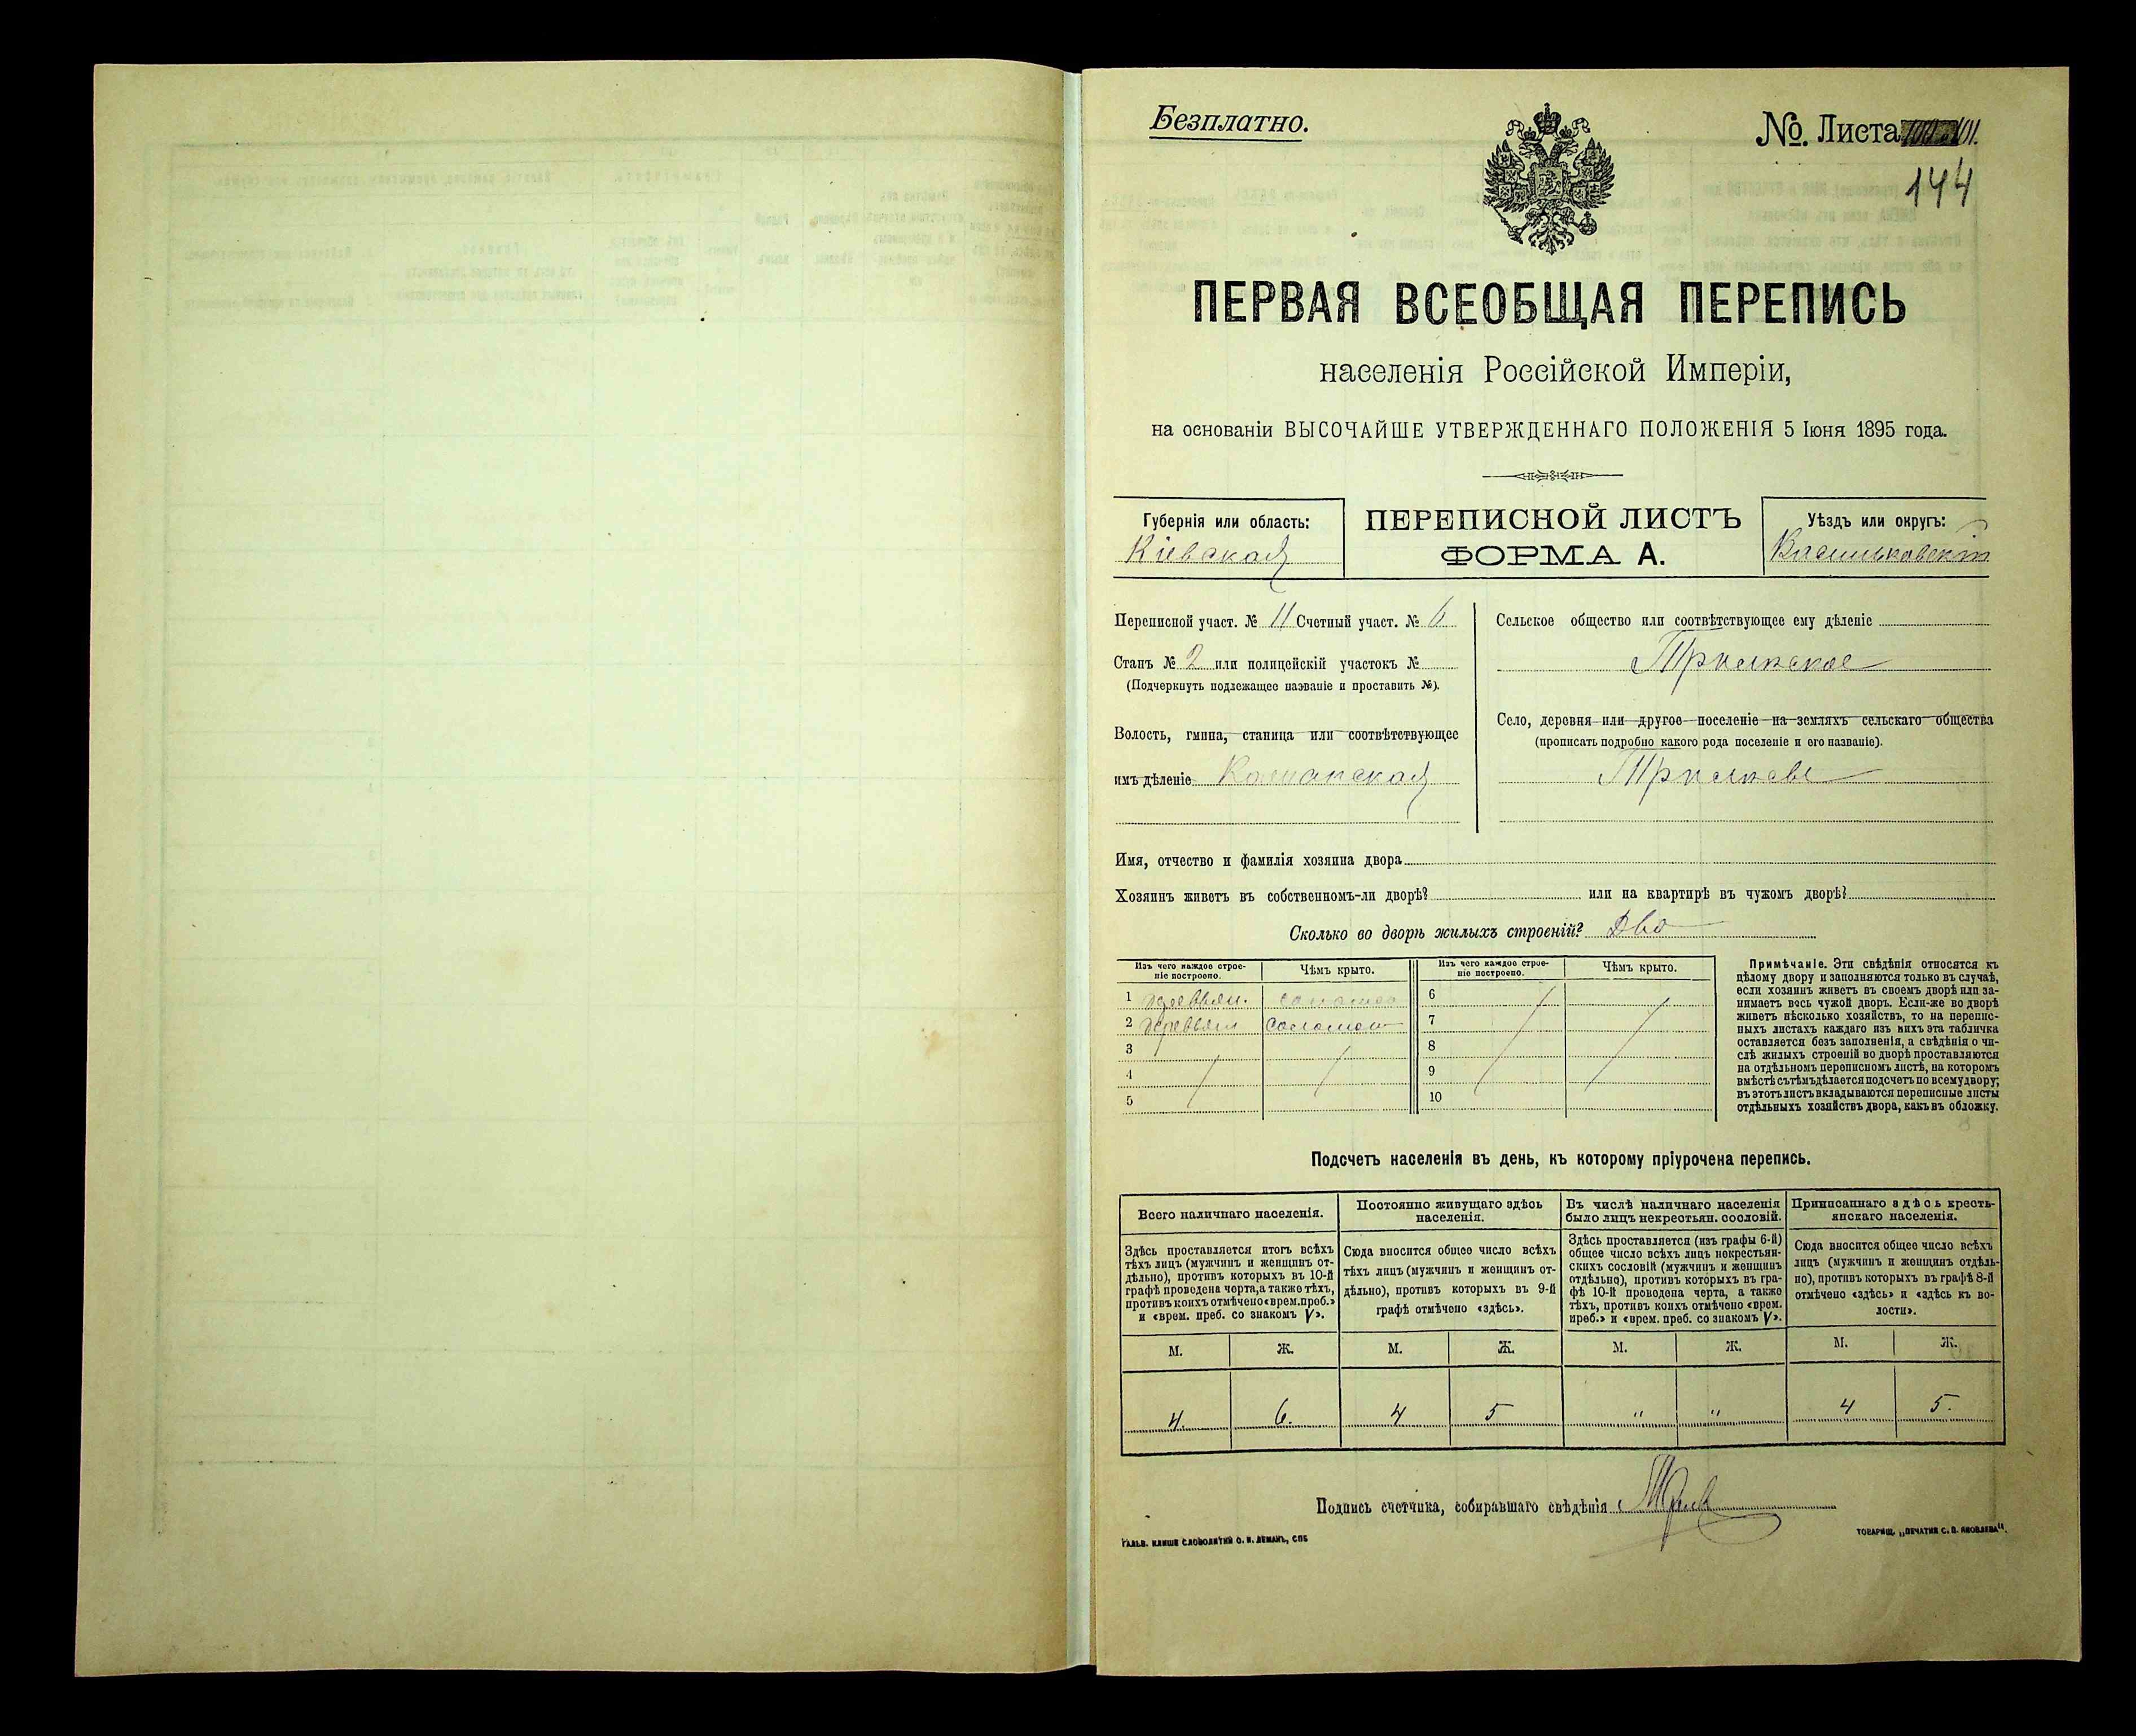 Безплатно.
№. Листа 101.
144
ПЕРВАЯ ВСЕОБЩАЯ ПЕРЕПИСЬ
населенія Россійской Имперіи,
на основаніи ВЫСОЧАЙШЕ УТВЕРЖДЕННАГО ПОЛОЖЕНІЯ 5 Іюня 1895 года.
Губернія или область:
Кіевская
ПЕРЕПИСНОЙ ЛИСТЪ
ФОРМА А.
Уѣздъ или округъ:
Васильковскій
Переписной участ. № 11 Счетный участ. № 6
Станъ № 2 или полицейскій участокъ №
(Подчеркнуть подлежащее названіе и проставить №).
Волость, гмина, станица или соотвѣтствующее
имъ дѣленіе Кошанская
Сельское общество или соотвѣтствующее ему дѣленіе
Трилиское
Село, деревня или другое поселеніе на земляхъ сельскаго общества
(прописать подробно какого рода поселеніе и его названіе).
Имя, отчество и фамилія хозяина двора
Хозяинъ живетъ въ собственномъ-ли дворѣ? или на квартирѣ въ чужомъ дворѣ?
Сколько во дворѣ жилыхъ строеній? Два
Изъ чего каждое строе-
ніе построено.
Чѣмъ крыто.
Изъ чего каждое строе-
ніе построено.
Чѣмъ крыто.
1 деревян. соломою 6
2 деревян соломою 7
3 8
4 9
5 10
Примѣчаніе. Эти свѣдѣнія относятся къ
цѣлому двору и заполняются только въ случаѣ,
если хозяинъ живетъ въ своемъ дворѣ или за-
нимаетъ весь чужой дворъ. Если-же во дворѣ
живетъ нѣсколько хозяйствъ, то на перепис-
ныхъ листахъ каждаго изъ нихъ эта табличка
оставляется безъ заполненія, а свѣдѣнія о чи-
слѣ жилыхъ строеній во дворѣ проставляются
на отдѣльномъ переписномъ листѣ, на которомъ
вмѣстѣ съ тѣмъ дѣлается подсчетъ по всему двору;
въ этотъ листъ вкладываются переписные листы
отдѣльныхъ хозяйствъ двора, какъ въ обложку.
Подсчетъ населенія въ день, къ которому пріурочена перепись.
Всего наличнаго населенія.
Здѣсь проставляется итогъ всѣхъ
тѣхъ лицъ (мужчинъ и женщинъ от-
дѣльно), противъ которыхъ въ 10-й
графѣ проведена черта, а также тѣхъ,
противъ коихъ отмѣчено «врем. преб.»
и «врем. преб. со знакомъ V».
Постоянно живущаго здѣсь
населенія.
Сюда вносится общее число всѣхъ
тѣхъ лицъ (мужчинъ и женщинъ от-
дѣльно), противъ которыхъ въ 9-й
графѣ отмѣчено «здѣсь».
Въ числѣ наличнаго населенія
было лицъ некрестьян. сословій.
Здѣсь проставляется (изъ графы 6-й)
общее число всѣхъ лицъ некрестьян-
скихъ сословій (мужчинъ и женщинъ
отдѣльно), противъ которыхъ въ гра-
фѣ 10-й проведена черта, а также
тѣхъ, противъ коихъ отмѣчено «врем.
преб.» и «врем. преб. со знакомъ V».
Приписаннаго здѣсь кресть-
янскаго населенія.
Сюда вносится общее число всѣхъ
лицъ (мужчинъ и женщинъ отдѣль-
но), противъ которыхъ въ графѣ 8-й
отмѣчено «здѣсь» и «здѣсь къ во-
лости».
М. Ж. М. Ж. М. Ж. М. Ж.
4. 6. 4 5 " " 4 5.
Подпись счетчика, собиравшаго свѣдѣнія
ГАЛЬВ. КЛИШЕ СЛОВОЛИТНИ О. И. ЛЕМАНЪ, СПБ
ТОВАРИЩ. „ПЕЧАТНЯ С. П. ЯКОВЛЕВА“.